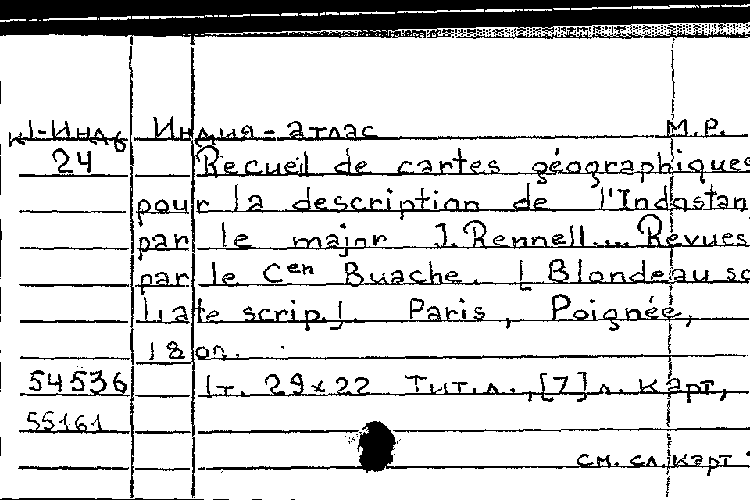 К1-Инд6 Индия - атлас М.Р.
24 Recueil de cartes géographiques
pour la description de l'Indostan
par le major J. Rennell.... Revues
par le Cen Buache. [Blondeau sc
liate scrip.]. Paris, Poignée,
1800.
54536 1т. 29x22 Тит.л., [7] л. карт,
55161
см. сл. карт